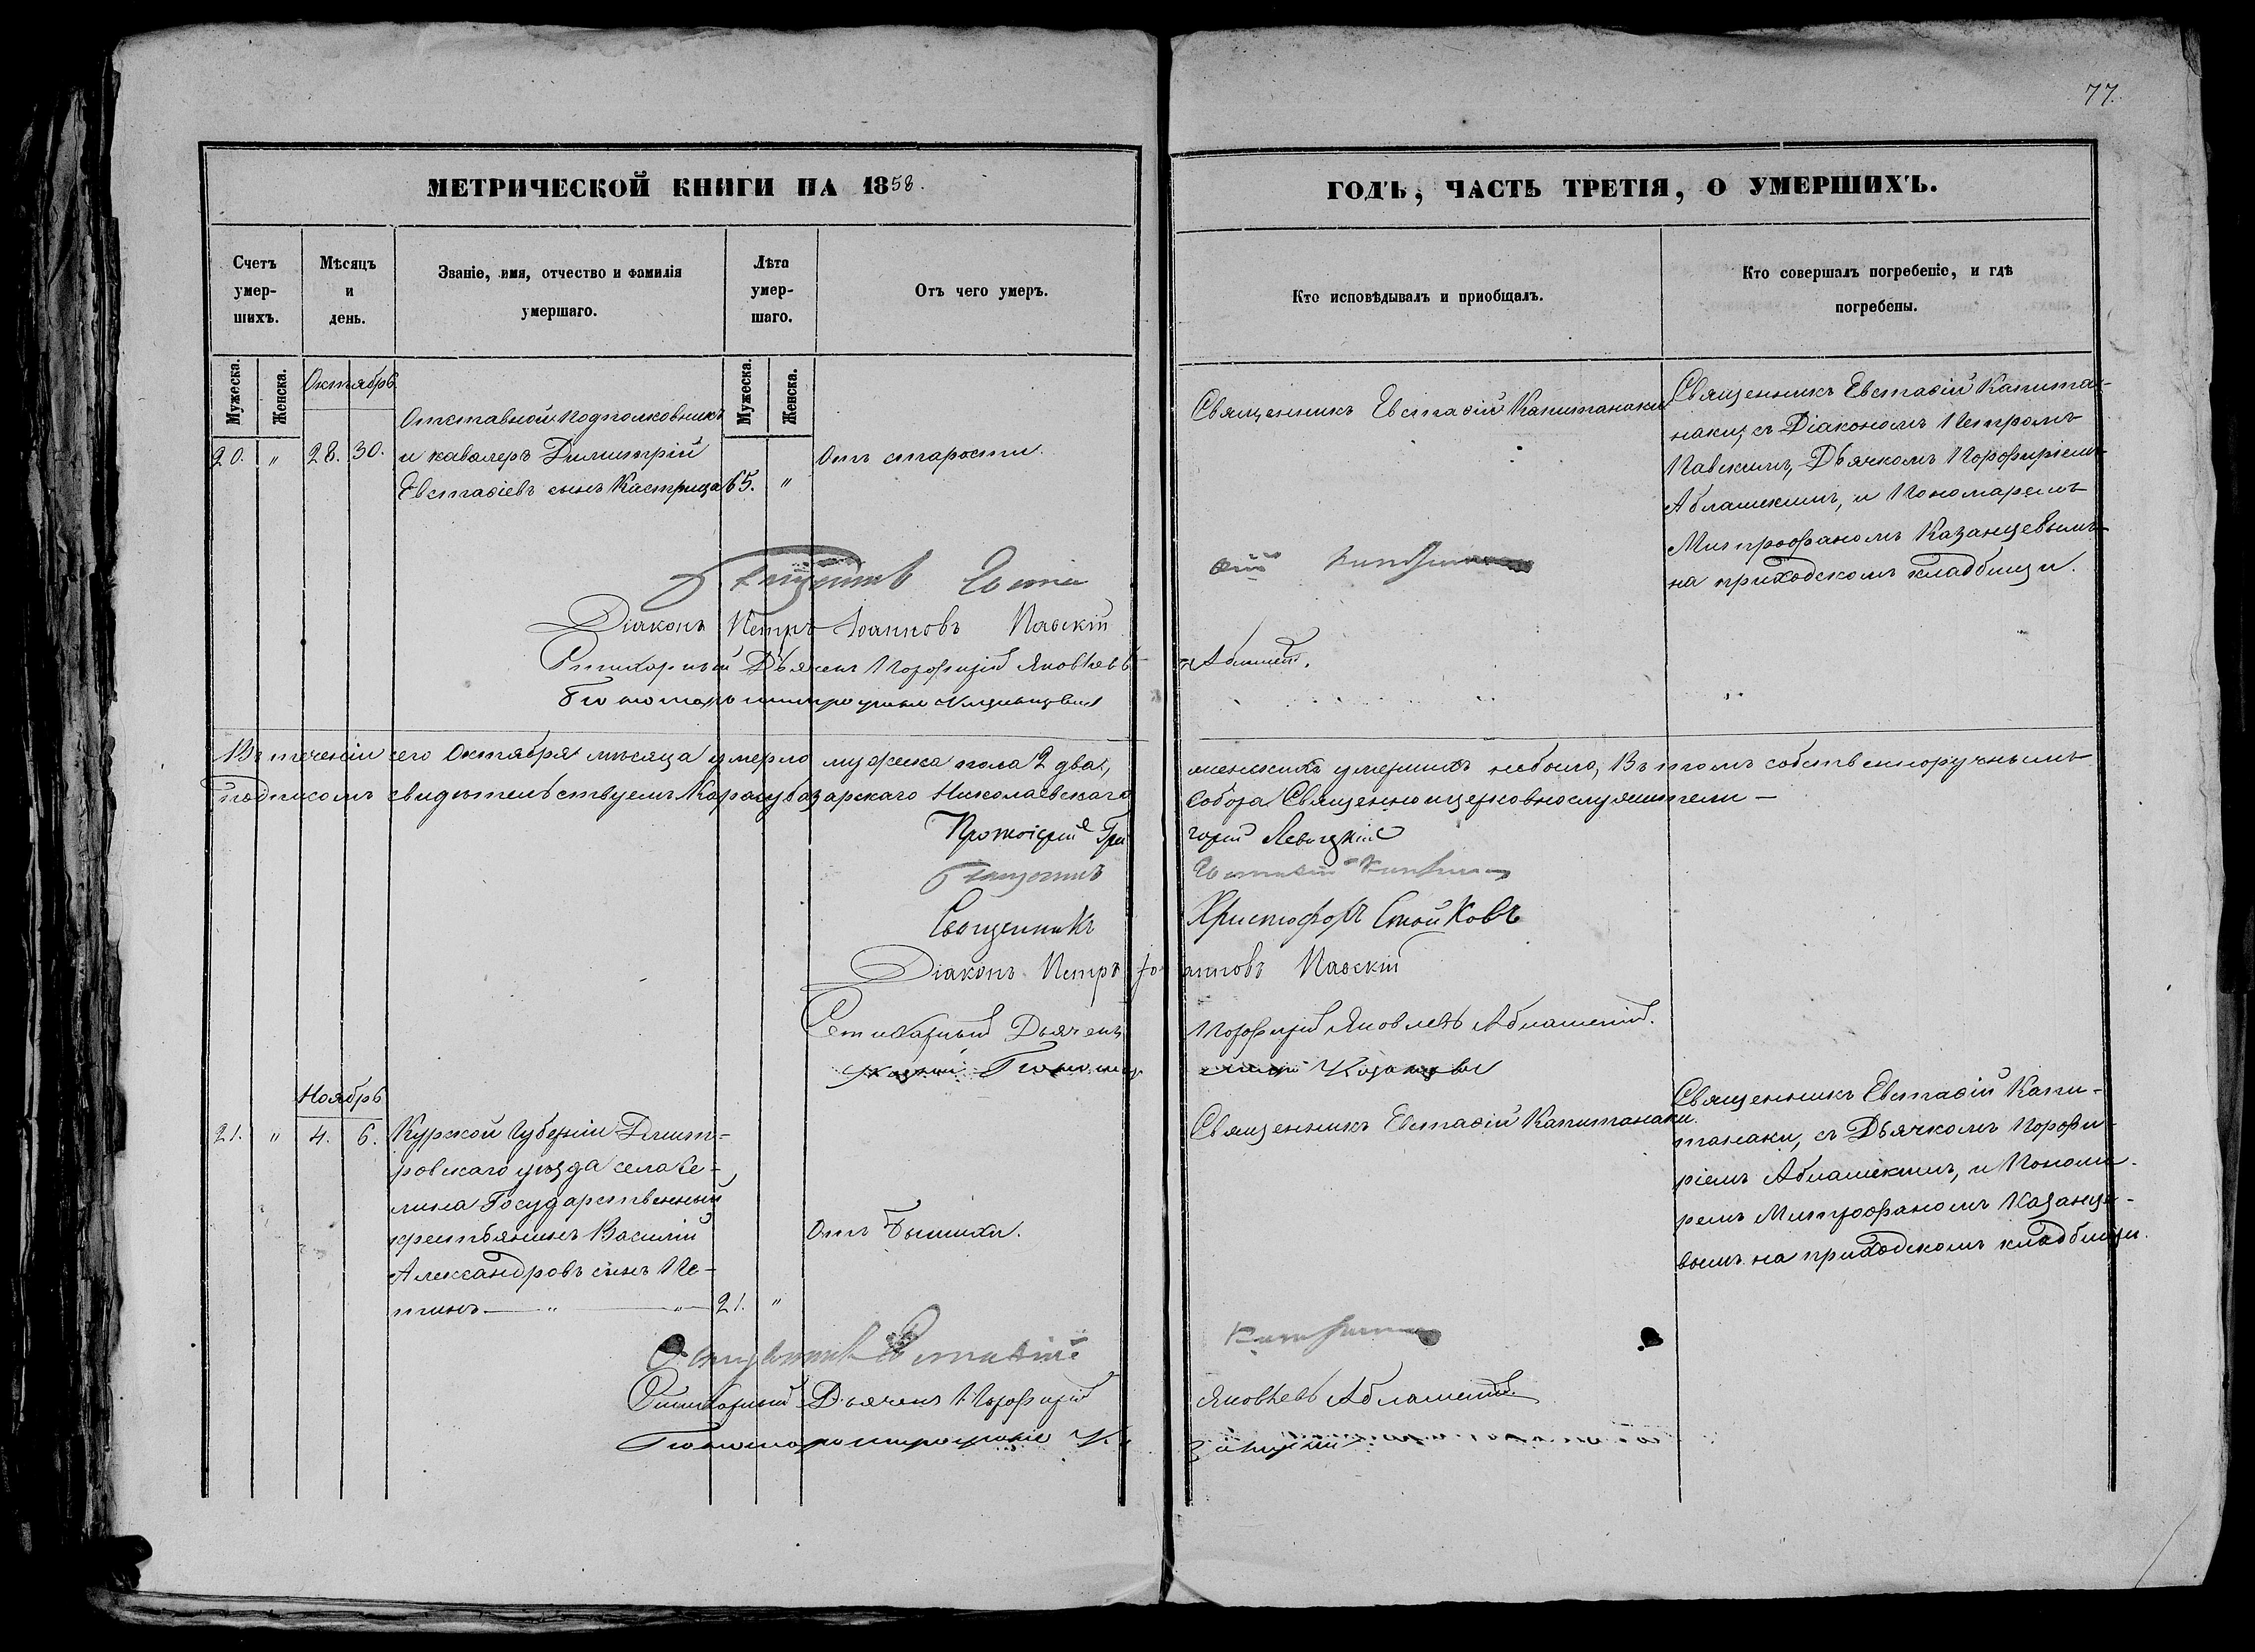 77.
МЕТРИЧЕСКОЙ КНИГИ НА 1858.
ГОДЪ, ЧАСТЬ ТРЕТІЯ, О УМЕРШИХЪ.
Счетъ
умер-
шихъ.
Мѣсяцъ
и
день.
Званіе, имя, отчество и фамилія
умершаго.
Лѣта
умер-
шаго.
Отъ чего умеръ.
Кто исповѣдывалъ и приобщалъ.
Кто совершалъ погребеніе, и гдѣ
погребены.
Мужеска.
Женска.
Мужеска.
Женска.
Октябрь
20. " 28. 30.
Отставной Подполковникъ
и кавалеръ Димитрій
Евстаѳіевъ сынъ Кастрица
65. "
Отъ старости.
Священникъ Евстаѳій Капитанаки
Священникъ Евстаѳій Капита-
наки, съ Діакономъ Петромъ
Павскимъ, Дьячкомъ Порфиріемъ
Аблашекимъ, и Пономаремъ
Митрофаномъ Казанцевымъ
на приходскомъ кладбищи.
Діаконъ Петръ Іоанновъ Павскій
Стихарный Дьячекъ Порфирій Яковлевъ
Въ теченіи сего Октября мѣсяца умерло мужеска пола 2 два, женскихъ умершихъ небыло, Въ томъ собственноручнымъ
подписомъ свидѣтельствуемъ Карасубазарскаго Николаевскаго Собора Священноцерковнослужители —
Протоіерей Григорій Левицкій
Священникъ Христофоръ Стойковъ
Діаконъ Петръ Іоанновъ Павскій
Стихарный Дьячекъ Порфирій Яковлевъ Аблашекій.
Ноябрь
21. " 4. 6.
Курской Губерніи Дмит-
ровскаго уѣзда села Се-
лина Государственный
крестьянинъ Василій
Александровъ сынъ Пе-
тинъ — " — " —
21. "
Отъ Чихотки.
Священникъ Евстаѳій Капитанаки.
Священникъ Евстаѳій Капи-
танаки, съ Дьячкомъ Порфи-
ріемъ Аблашекимъ, и Понома-
ремъ Митрофаномъ Казанце-
вымъ на приходскомъ кладбищи.
Стихарный Дьячекъ Порфирій Яковлевъ Аблашекій.